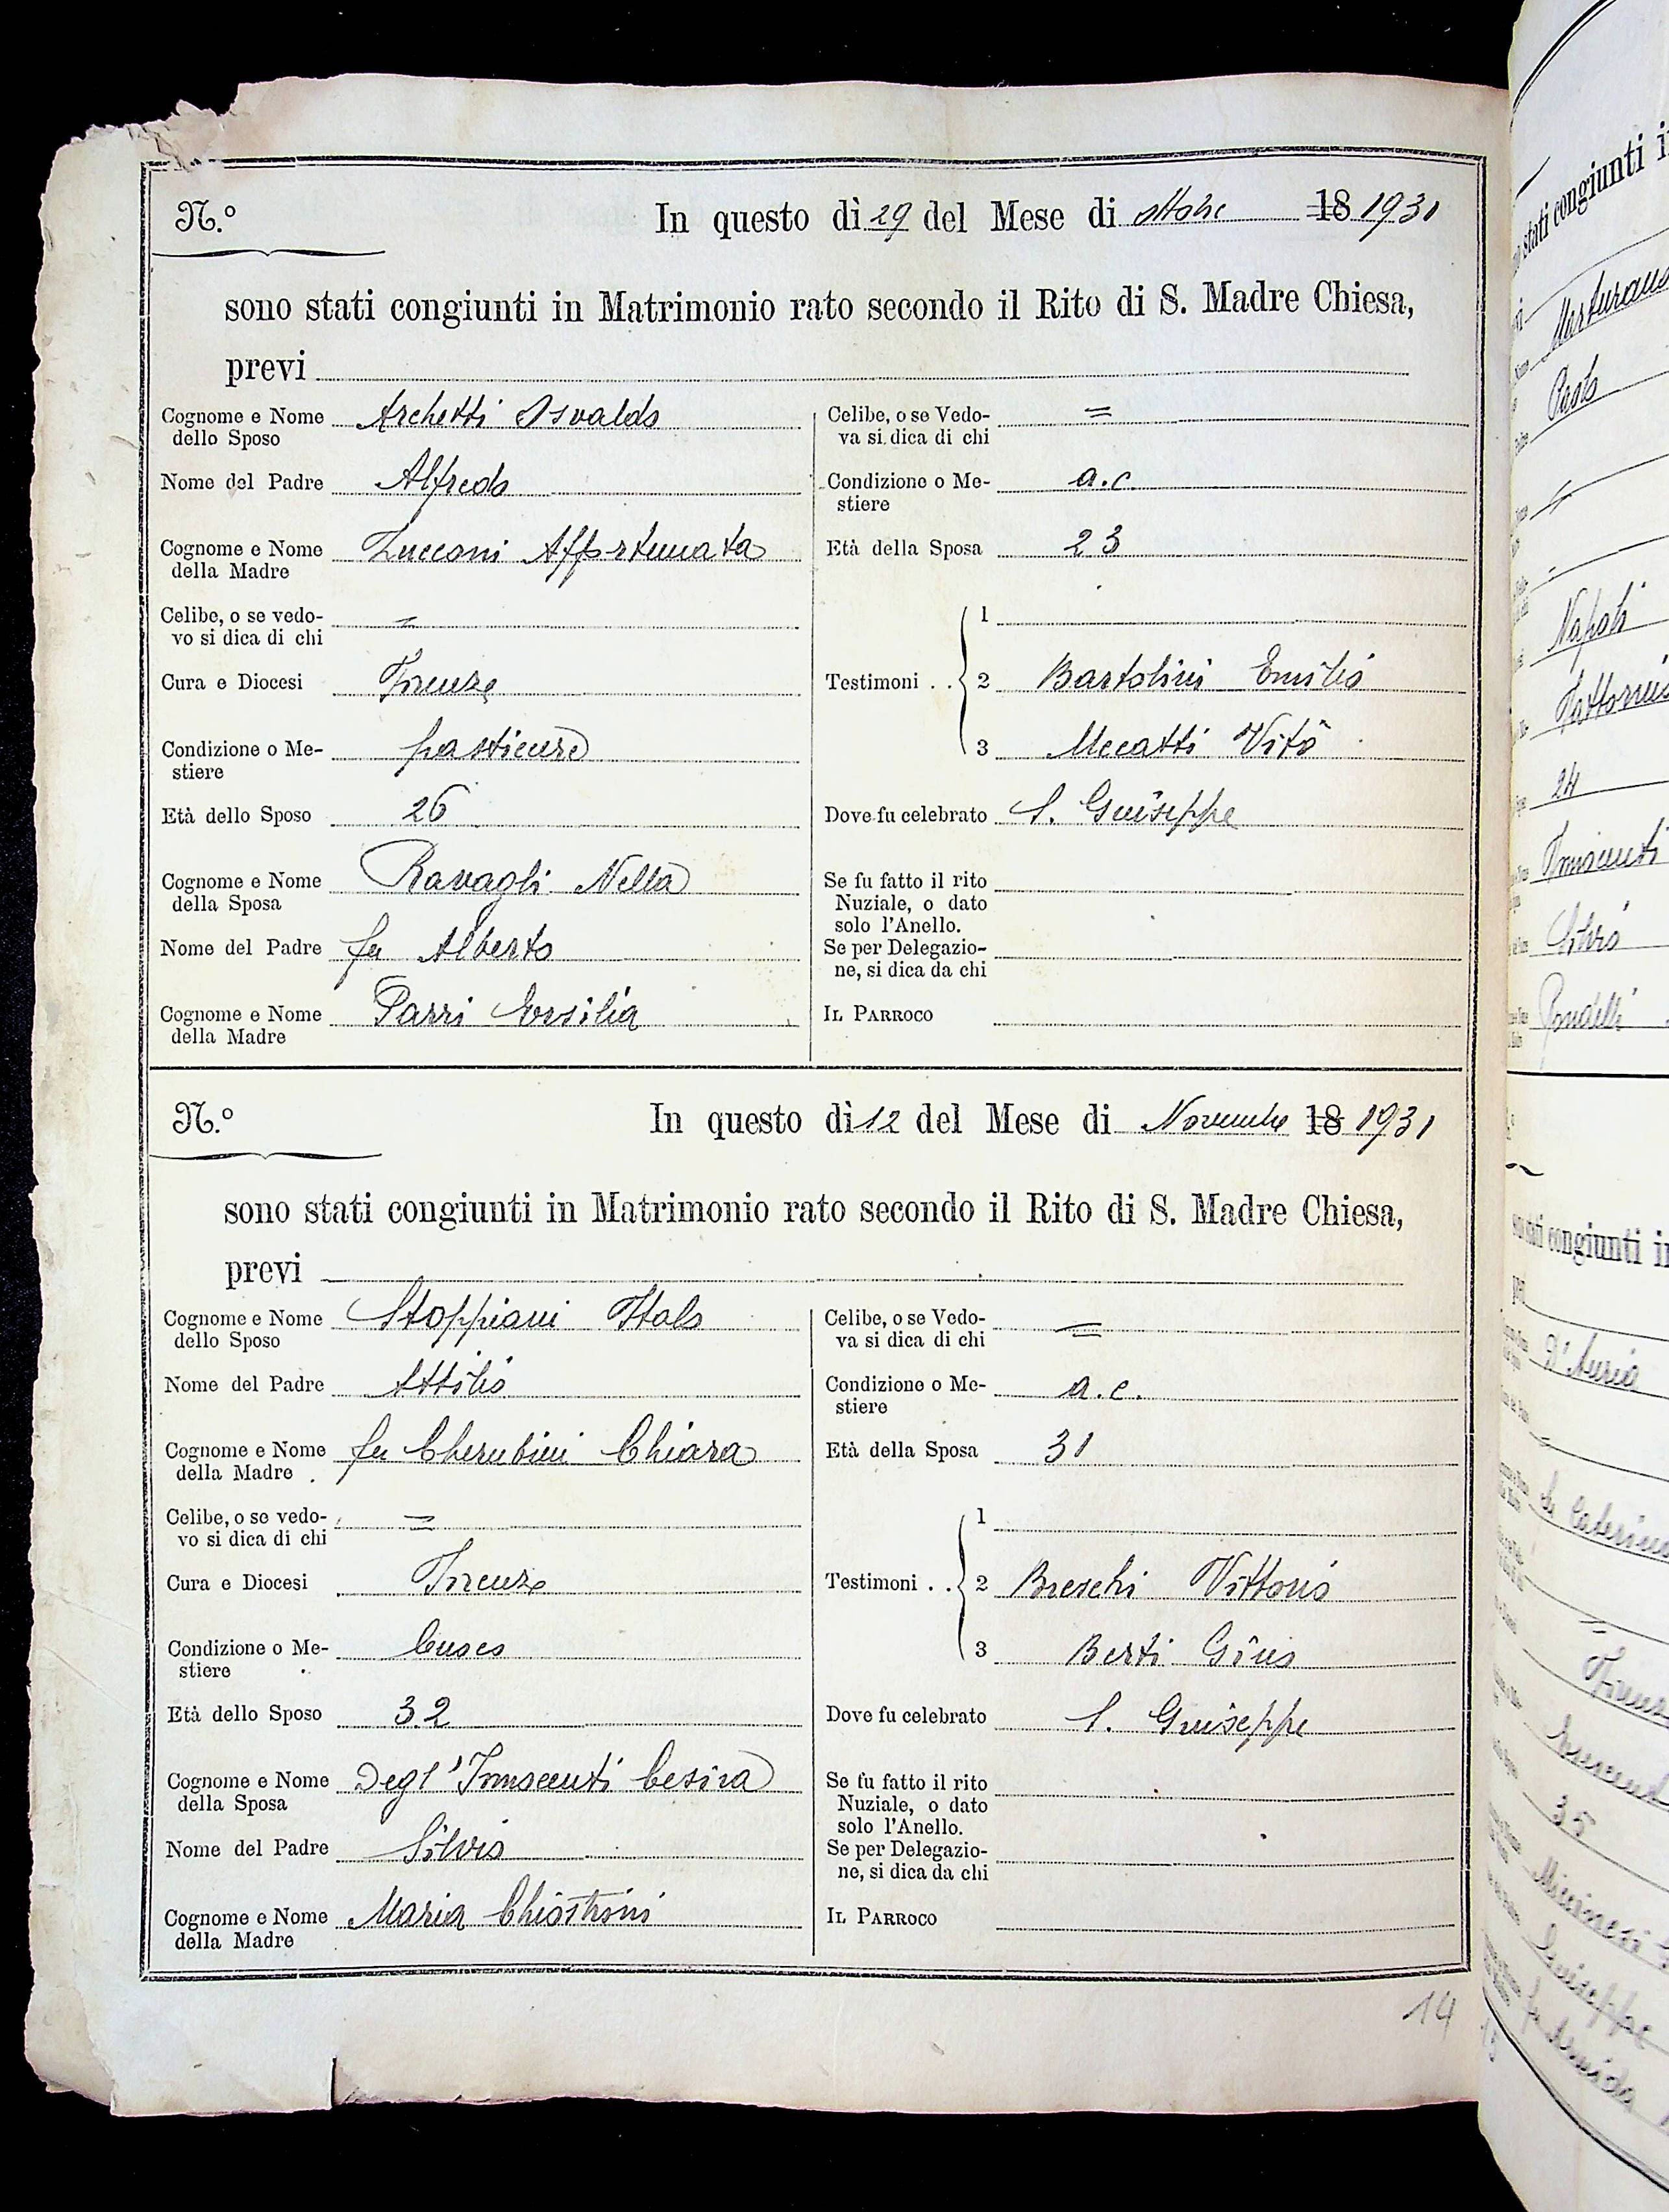 N.º In questo dì 29 del Mese di ottobre 18 1931
sono stati congiunti in Matrimonio rato secondo il Rito di S. Madre Chiesa,
previ
Cognome e Nome dello Sposo Archetti Osvaldo
Nome del Padre Alfredo
Cognome e Nome della Madre Zucconi Affortunata
Celibe, o se vedo-
vo si dica di chi =
Cura e Diocesi Firenze
Condizione o Me-
stiere pasticere
Età dello Sposo 26
Cognome e Nome della Sposa Ravagli Nella
Nome del Padre fu Alberto
Cognome e Nome della Madre Parri Ersilia
Celibe, o se Vedo-
va si dica di chi =
Condizione o Me-
stiere a.c.
Età della Sposa 23
Testimoni . . 1
2 Bartolini Emilio
3 Mecatti Vito
Dove fu celebrato S. Giuseppe
Se fu fatto il rito
Nuziale, o dato
solo l'Anello.
Se per Delegazio-
ne, si dica da chi
IL PARROCO
N.º In questo dì 12 del Mese di Novembre 18 1931
sono stati congiunti in Matrimonio rato secondo il Rito di S. Madre Chiesa,
previ
Cognome e Nome dello Sposo Stoppiani Italo
Nome del Padre Attilio
Cognome e Nome della Madre fu Cherubini Chiara
Celibe, o se vedo-
vo si dica di chi =
Cura e Diocesi Firenze
Condizione o Me-
stiere Cuoco
Età dello Sposo 32
Cognome e Nome della Sposa Degl'Innocenti Cesira
Nome del Padre Silvio
Cognome e Nome della Madre Maria Chiostrini
Celibe, o se Vedo-
va si dica di chi =
Condizione o Me-
stiere a.c.
Età della Sposa 31
Testimoni . . 1
2 Breschi Vittorio
3 Berti Gino
Dove fu celebrato S. Giuseppe
Se fu fatto il rito
Nuziale, o dato
solo l'Anello.
Se per Delegazio-
ne, si dica da chi
IL PARROCO
14
stati congiunti
Paolo
Napoli
24
Innocenti
Silvio
stati congiunti in
D'Auria
35
Giuseppe